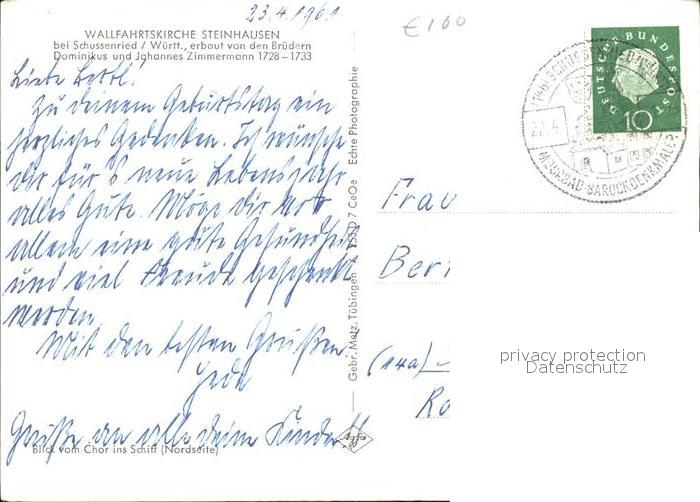 23.4.1961
€100
WALLFAHRTSKIRCHE STEINHAUSEN
bei Schussenried / Württ., erbaut von den Brüdern
Dominikus und Johannes Zimmermann 1728–1733
Liebe Bertl!
Zu deinem Geburtstag ein
herzliches Gedenken. Ich wünsche
dir für's neue Lebensjahr
alles Gute. Möge dir vor
allem eine gute Gesundheit
und viel Freude geschenkt
werden.
Mit den besten Grüßen
Grüße an alle deine Kinder!!
Blick vom Chor ins Schiff (Nordseite)
Gebr. Metz, Tübingen
7 CeOe
Echte Photographie
Agfa
DEUTSCHE BUNDESPOST
10
22.4
MOORBAD BAROCKDENKMALE
Frau
Ber
(14a)
Ro
privacy protection
Datenschutz